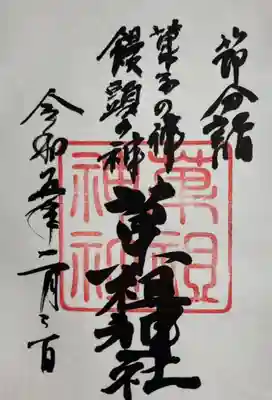 節分詣
菓子の神
饅頭の神
菓祖神社
菓祖神社
令和五年二月三日